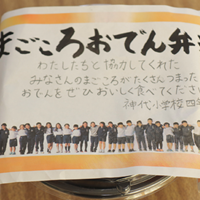 まごころおでん弁
わたしたちと協力してくれた
みなさんのまごころがたくさんつまった
おでんをぜひおいしく食べてくださ
神代小学校四年